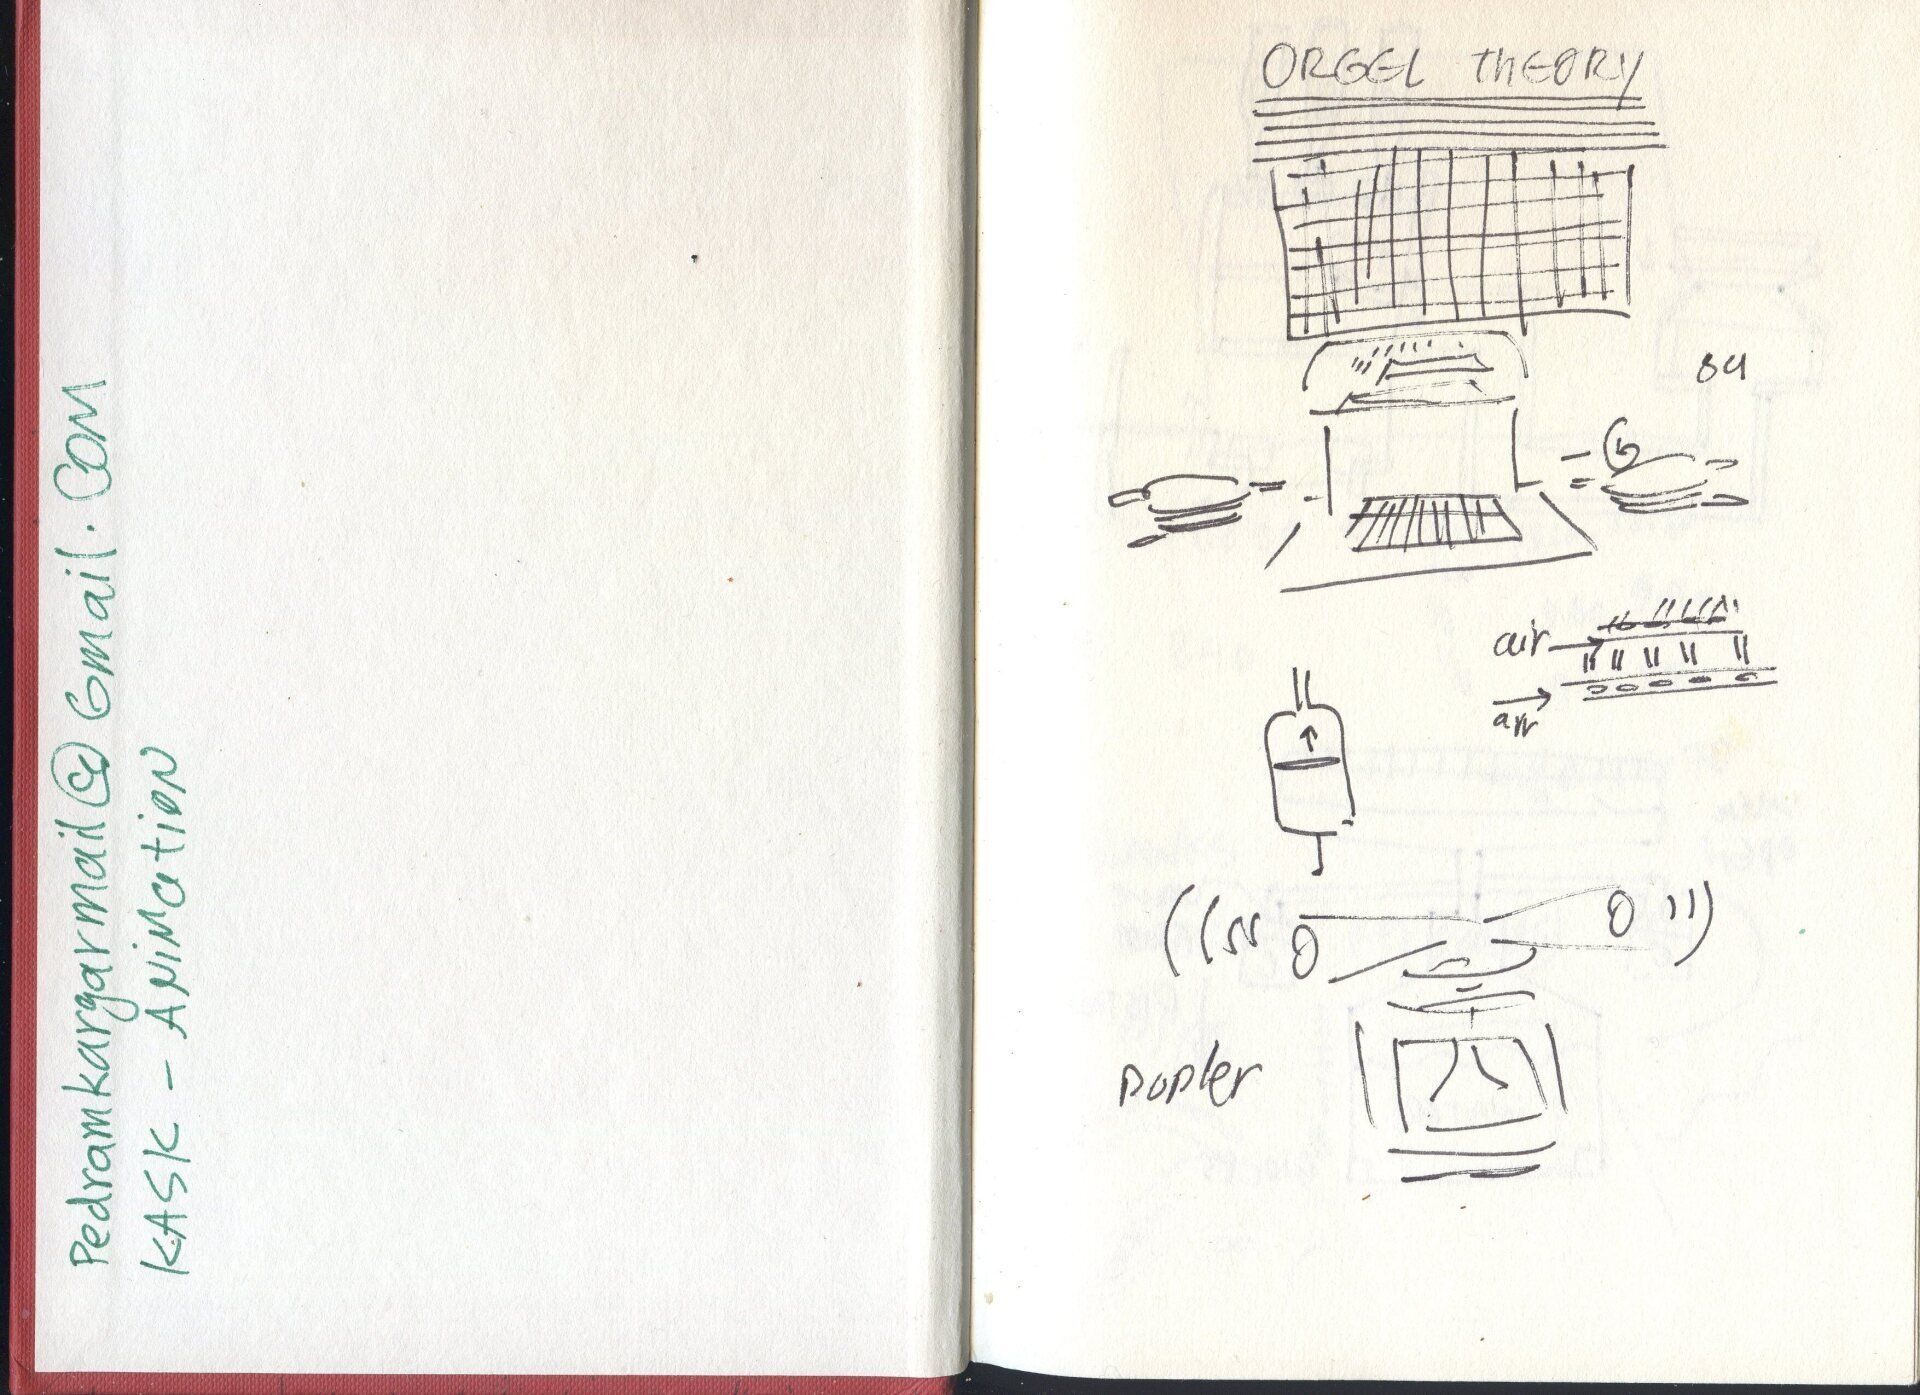 Pedramkargarmail@Gmail.com
KASK - ANiMatioN
ORGEL THEORY
air
air